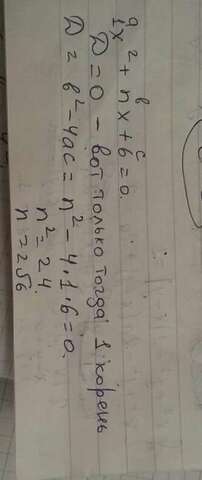 a b c
1x² + nx + 6 = 0.
D = 0 – вот только тогда 1 корень
D = b² – 4ac = n² – 4·1·6 = 0.
n² = 24.
n = 256